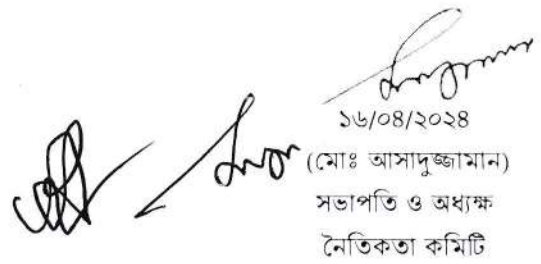 ১৬/০৪/২০২৪
(মোঃ আসাদুজ্জামান)
সভাপতি ও অধ্যক্ষ
নৈতিকতা কমিটি